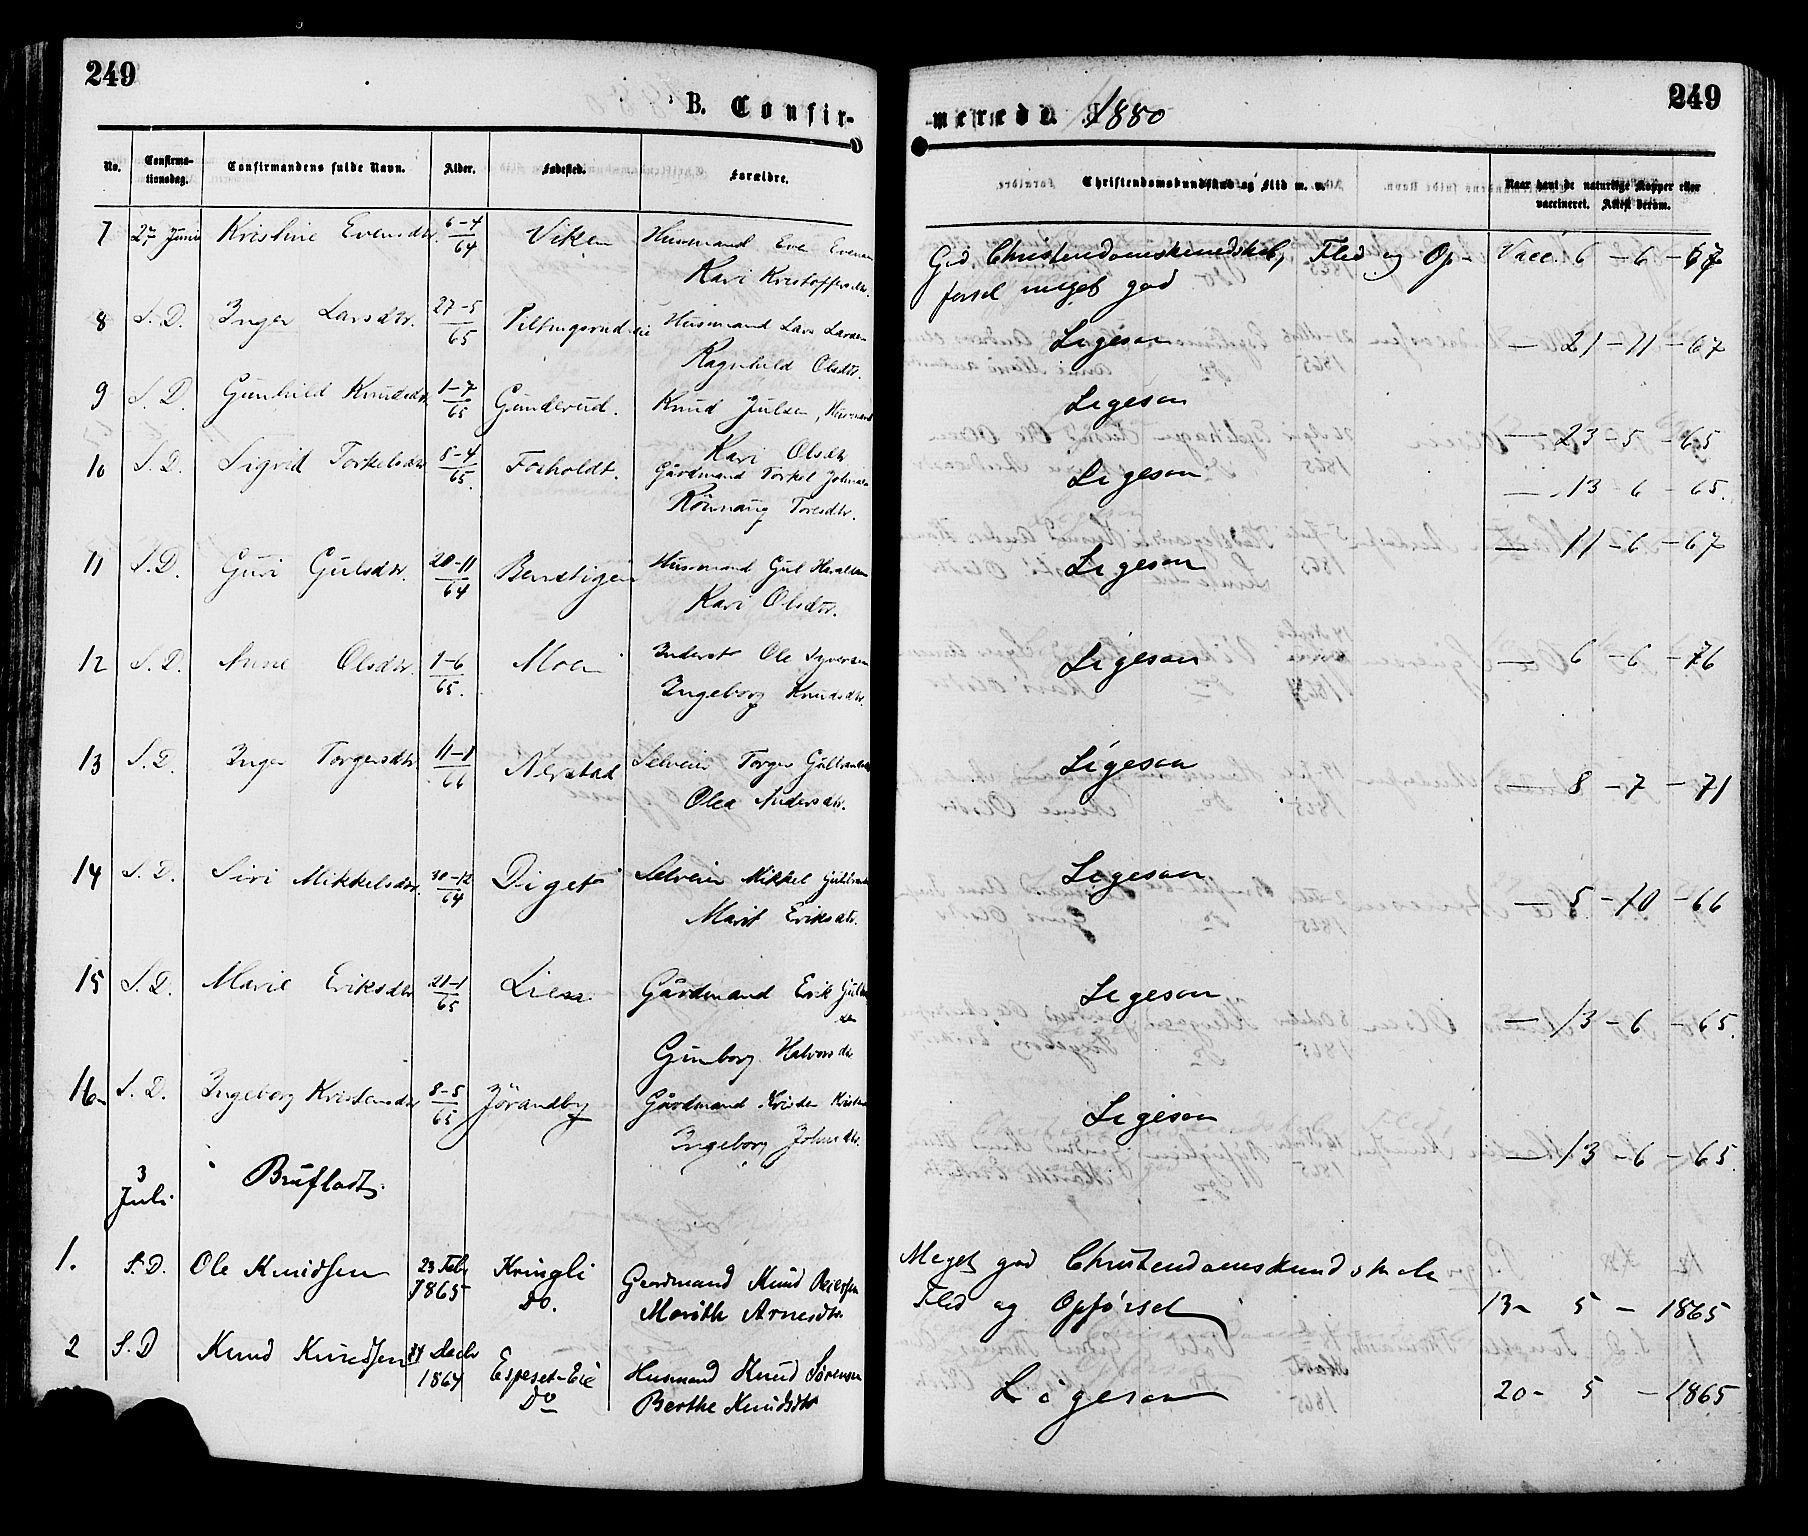 249
249
B. Confir-
merede. 1880
No.
Confirma-
tionsdag.
Confirmandens fulde Navn.
Alder.
Fødested.
Forældre.
Christendomskundskab og Flid m. v.
Naar havt de naturlige Kopper eller
vaccineret. Attest derom.
7 27 Juni Kristine Evensdtr. 6-4 64 Viken Husmand Even Evensen
Kari Kristoffersdtr.
God Christendomskundskab, Flid og Op-
førsel meget god
Vacc. 6 - 6 - 67
8 S. D. Inger Larsdtr. 27-5 65 Husmand Lars Larsen
Ragnhild Olsdtr.
Ligesaa
- 21 - 11 - 67
9 S. D. Gunhild Knudsdtr. 1-7 65 Gunderud. Knud Julsen, Husmand
Kari Olsdtr
Ligesaa
- 23 - 5 - 65
10 S. D. Sigrid Torkelsdtr 5-4 65. Foxholdt. Gårdmand Torkel Johnsen
Rönnaug Toresdtr.
Ligesaa
- 13 - 6 - 65.
11 S. D. Guri Gulsdtr. 20-11 64 Husmand Gul
Kari Olsdtr.
Ligesaa
- 11 - 6 - 67
12 S. D. Anne Olsdtr. 1-6 65. Moen Inderst Ole Syversen
Ingeborg Knudsdtr.
Ligesaa
- 6 - 6 - 76
13 S. D. Inger Torgersdtr. 11-1 66 Nerstad Selveier Torger
Olea Andersdtr.
Ligesaa
- 8 - 7 - 71
14 S. D. Siri Mikkelsdtr. 30-12 64 Diget Selveier Mikkel
Marit Eriksdtr.
Ligesaa
- 5 - 10 - 66
15 S. D. Marie Eriksdtr 21-1 65 Lien Gårdmand Erik
Gunborg Halvorsdtr
Ligesaa
- 13 - 6 - 65.
16 S. D. Ingeborg Kristensdtr 8-5 65 Jörandby Gårdmand Kristen
Ingeborg Johnsdtr.
Ligesaa
- 13 - 6 - 65.
3
Juli
Brufladt.
1. S. D. Ole Knudsen 23 Feb. 1865 Kringli Do. Gaardmand Knud
Marithe Arnesdtr.
Meget god Christendomskundskab
Flid og Opførsel
13 - 5 - 1865
2 S. D Knud Knudsen Decbr 1864 Espeset-Eie Do Husmand Knud Sørensen
Berthe Knudsdtr
Ligesaa
20 - 5 - 1865